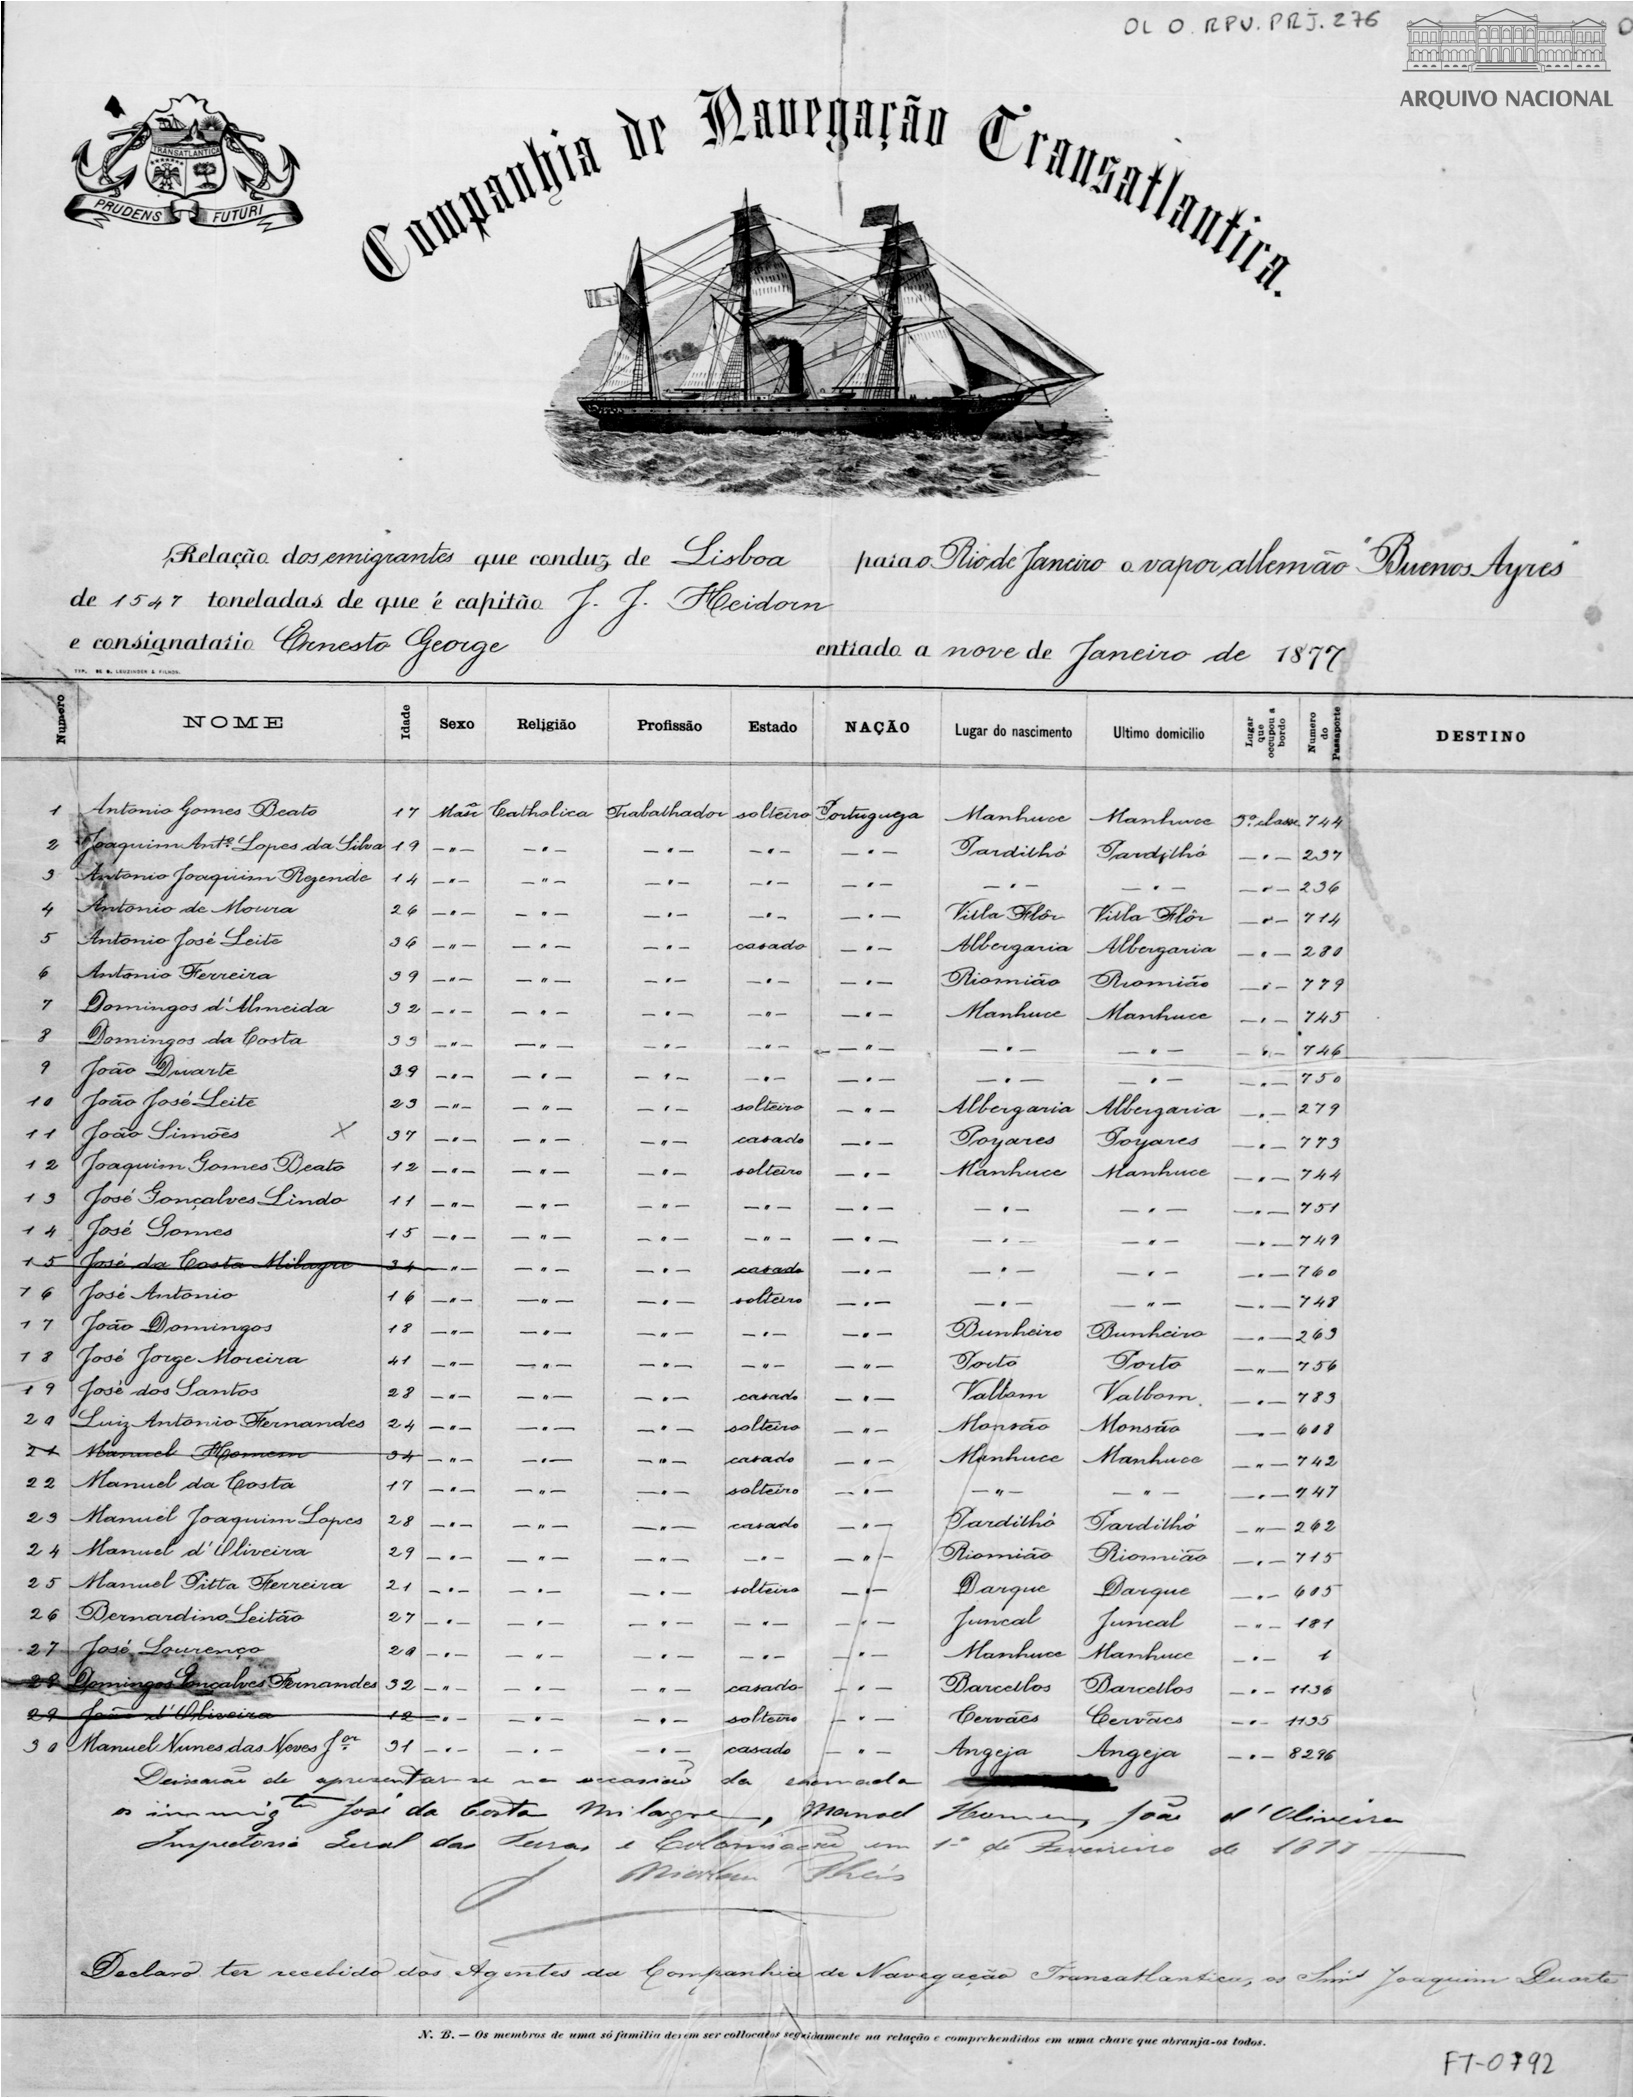 OL O. RPV. PRJ. 276
ARQUIVO NACIONAL
TRANSATLANTICA
PRUDENS FUTURI
Companhia de Navegação Transatlantica.
Relação dos emigrantes que conduz de Lisboa para o Rio de Janeiro o vapor allemão "Buenos Ayres"
de 1547 toneladas de que é capitão J. J. Heidorn
e consignatario Ernesto George entrado a nove de Janeiro de 1877
TYP. DE G. LEUZINGER & FILHOS.
Numero NOME Idade Sexo Religião Profissão Estado NAÇÃO Lugar do nascimento Ultimo domicilio Lugar que occupou a bordo Numero do Passaporte DESTINO
1 Antonio Gomes Beato 17 Masc Catholica Trabalhador solteiro Portugueza Manhuce Manhuce 3ª classe 744
2 Joaquim Antº Lopes da Silva 19 —"— —"— —"— —"— —"— Pardilhó Pardilhó —"— 237
3 Antonio Joaquim Rezende 14 —"— —"— —"— —"— —"— —"— —"— —"— 236
4 Antonio de Moura 26 —"— —"— —"— —"— —"— Villa Flôr Villa Flôr —"— 714
5 Antonio José Leite 36 —"— —"— —"— casado —"— Albergaria Albergaria —"— 280
6 Antonio Ferreira 39 —"— —"— —"— —"— —"— Riomião Riomião —"— 779
7 Domingos d'Almeida 32 —"— —"— —"— —"— —"— Manhuce Manhuce —"— 745
8 Domingos da Costa 33 —"— —"— —"— —"— —"— —"— —"— —"— 746
9 João Duarte 39 —"— —"— —"— —"— —"— —"— —"— —"— 750
10 João José Leite 23 —"— —"— —"— solteiro —"— Albergaria Albergaria —"— 279
11 João Simões X 37 —"— —"— —"— casado —"— Poyares Poyares —"— 773
12 Joaquim Gomes Beato 12 —"— —"— —"— solteiro —"— Manhuce Manhuce —"— 744
13 José Gonçalves Lindo 11 —"— —"— —"— —"— —"— —"— —"— —"— 751
14 José Gomes 15 —"— —"— —"— —"— —"— —"— —"— —"— 749
15 José da Costa Milagre 34 —"— —"— —"— casado —"— —"— —"— —"— 760
16 José Antonio 16 —"— —"— —"— solteiro —"— —"— —"— —"— 748
17 João Domingos 18 —"— —"— —"— —"— —"— Bunheiro Bunheiro —"— 263
18 José Jorge Moreira 41 —"— —"— —"— —"— —"— Porto Porto —"— 756
19 José dos Santos 28 —"— —"— —"— casado —"— Valbom Valbom. —"— 783
20 Luiz Antonio Fernandes 24 —"— —"— —"— solteiro —"— Monsão Monsão —"— 608
21 Manuel Homem 34 —"— —"— —"— casado —"— Manhuce Manhuce —"— 742
22 Manuel da Costa 17 —"— —"— —"— solteiro —"— —"— —"— —"— 747
23 Manuel Joaquim Lopes 28 —"— —"— —"— casado —"— Pardilhó Pardilhó —"— 262
24 Manuel d'Oliveira 29 —"— —"— —"— —"— —"— Riomião Riomião —"— 715
25 Manuel Pitta Ferreira 21 —"— —"— —"— solteiro —"— Darque Darque —"— 605
26 Bernardino Leitão 27 —"— —"— —"— —"— —"— Juncal Juncal —"— 181
27 José Lourenço 20 —"— —"— —"— —"— —"— Manhuce Manhuce —"— 1
28 Domingos Gonçalves Fernandes 32 —"— —"— —"— casado —"— Barcellos Barcellos —"— 1136
29 João d'Oliveira 12 —"— —"— —"— solteiro —"— Cervães Cervães —"— 1135
30 Manuel Nunes das Neves Jor 31 —"— —"— —"— casado —"— Angeja Angeja —"— 8296
Deixarão de apresentar-se na occasião da chamada
os immigtes José da Costa Milagre, Manoel Homem, João d'Oliveira
Inspectoria Geral das Terras e Colonisação em 1º de Fevereiro de 1877
Declaro ter recebido dos Agentes da Companhia de Navegação Transatlantica, os Snrs Joaquim Duarte
N. B. — Os membros de uma só familia devem ser collocados seguidamente na relação e comprehendidos em uma chave que abranja-os todos.
FT-0792